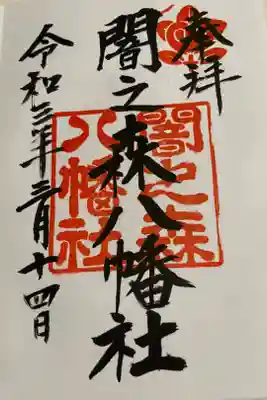 奉拝
闇之森八幡社
闇之森
八幡社
令和三年三月十四日